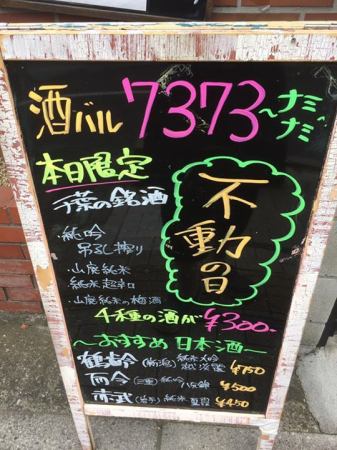 酒バル 7373 〜ナミナミ〜
本日限定
千葉の銘酒
不動の日
・純吟
吊るし搾り
・山廃純米
純米超辛口
・山廃純米の梅酒
4種の酒が ¥300-
〜おすすめ日本酒〜
鶴齢 (新潟) 純米吟 ¥750
而今 (三重) 純吟 八反錦 ¥500
赤武 (岩手) 純米 夏霞 ¥450